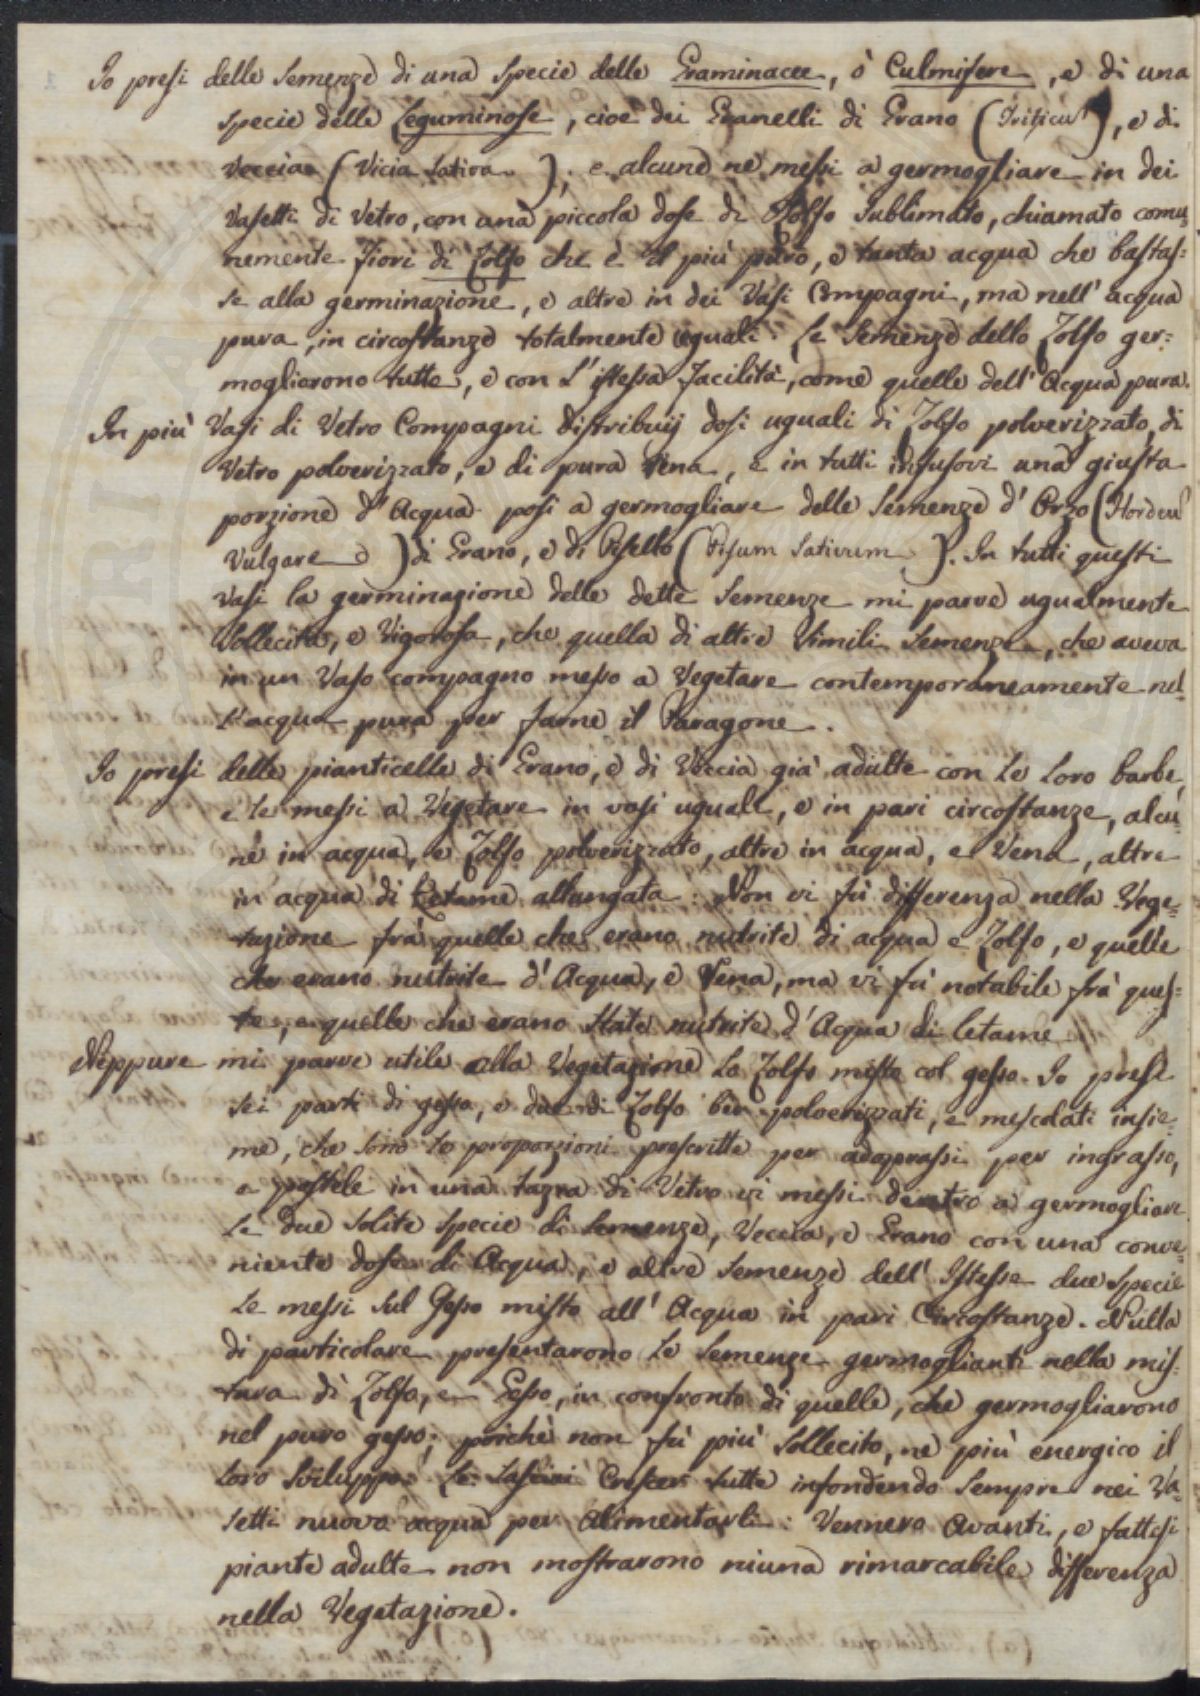 Io presi delle Semenze di una Specie delle Graminacee, ò Culmifere, e di una
specie delle Leguminose, cioè dei Granelli di Grano (Triticu), e di
Veccia (Vicia Sativa); e alcune ne messi a germogliare in dei
Vasetti di Vetro, con una piccola dose di Zolfo Sublimato, chiamato comu=
nemente Fiori di Zolfo che è il più puro, e tanta acqua che bastas=
se alla germinazione, e altre in dei Vasi Compagni, ma nell' acqua
pura, in circostanze totalmente eguali. Le Semenze dello Zolfo ger=
mogliorono tutte, e con l' istessa facilità, come quelle dell' Acqua pura.
In più Vasi di Vetro Compagni distribuij dosi uguali di Zolfo polverizzato, di
Vetro polverizzato, e di pura Rena, e in tutti infusovi una giusta
porzione d' Acqua posi a germogliare delle Semenze d' Orzo (Hordeu
Vulgare) di Grano, e di Pisello (Pisum Sativum). In tutti questi
Vasi la germinazione delle dette Semenze mi parve ugualmente
Sollecita, e Vigorosa, che quella di altre Simili Semenze, che aveva
in un Vaso compagno messo a Vegetare contemporaneamente nel=
l'acqua pura per farne il Paragone.
Io presi delle pianticelle di Grano, e di Veccia già adulte con le loro barbe,
e le messi a Vegetare in vasi uguali, e in pari circostanze, alcu=
ne in acqua, e Zolfo polverizzato, altre in acqua, e Rena, altre
in acqua di Letame allungata. Non vi fù differenza nella Vege=
tazione frà quelle che erano nutrite di acqua e Zolfo, e quelle
che erano nutrite d' Acqua, e Rena, ma vi fù notabile frà ques=
te, e quelle che erano State nutrite d' Acqua di letame.
Neppure mi parve utile alla Vegetazione lo Zolfo misto col gesso. Io presi
sei parti di gesso, e due di Zolfo ben polverizzati, e mescolati insie=
me, che sono le proporzioni prescritte per adoprassi per ingrasso,
e postele in una tazza di Vetro vi messi dentro a germogliare
le due solite specie di Semenze, Veccia, e Grano con una conve=
niente dose di Acqua, e altre Semenze dell' Istesse due specie
le messi sul Gesso misto all' Acqua in pari Circostanze. Nulla
di particolare presentarono le Semenze germoglianti nella mis=
tura di Zolfo, e Gesso, in confronto di quelle, che germogliarono
nel puro gesso; poichè non fù più Sollecito, ne più energico il
loro Sviluppo. Le lasciai Crescer tutte infondendo Sempre nei Va=
setti nuova acqua per alimentarli: Vennero avanti, e fattesi
piante adulte non mostrarono niuna rimarcabile differenza
nella Vegetazione.